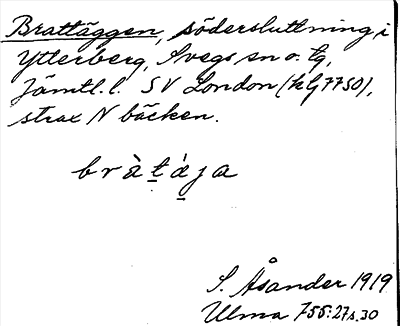 Brattäggen, södersluttning i
Ytterberg, Svegs sn o. tg,
Jämtl. l. SV London (hG 7750),
strax N bäcken.
bràt̠á̠ja
S. Åsander 1919
Ulma 755:27 s. 30